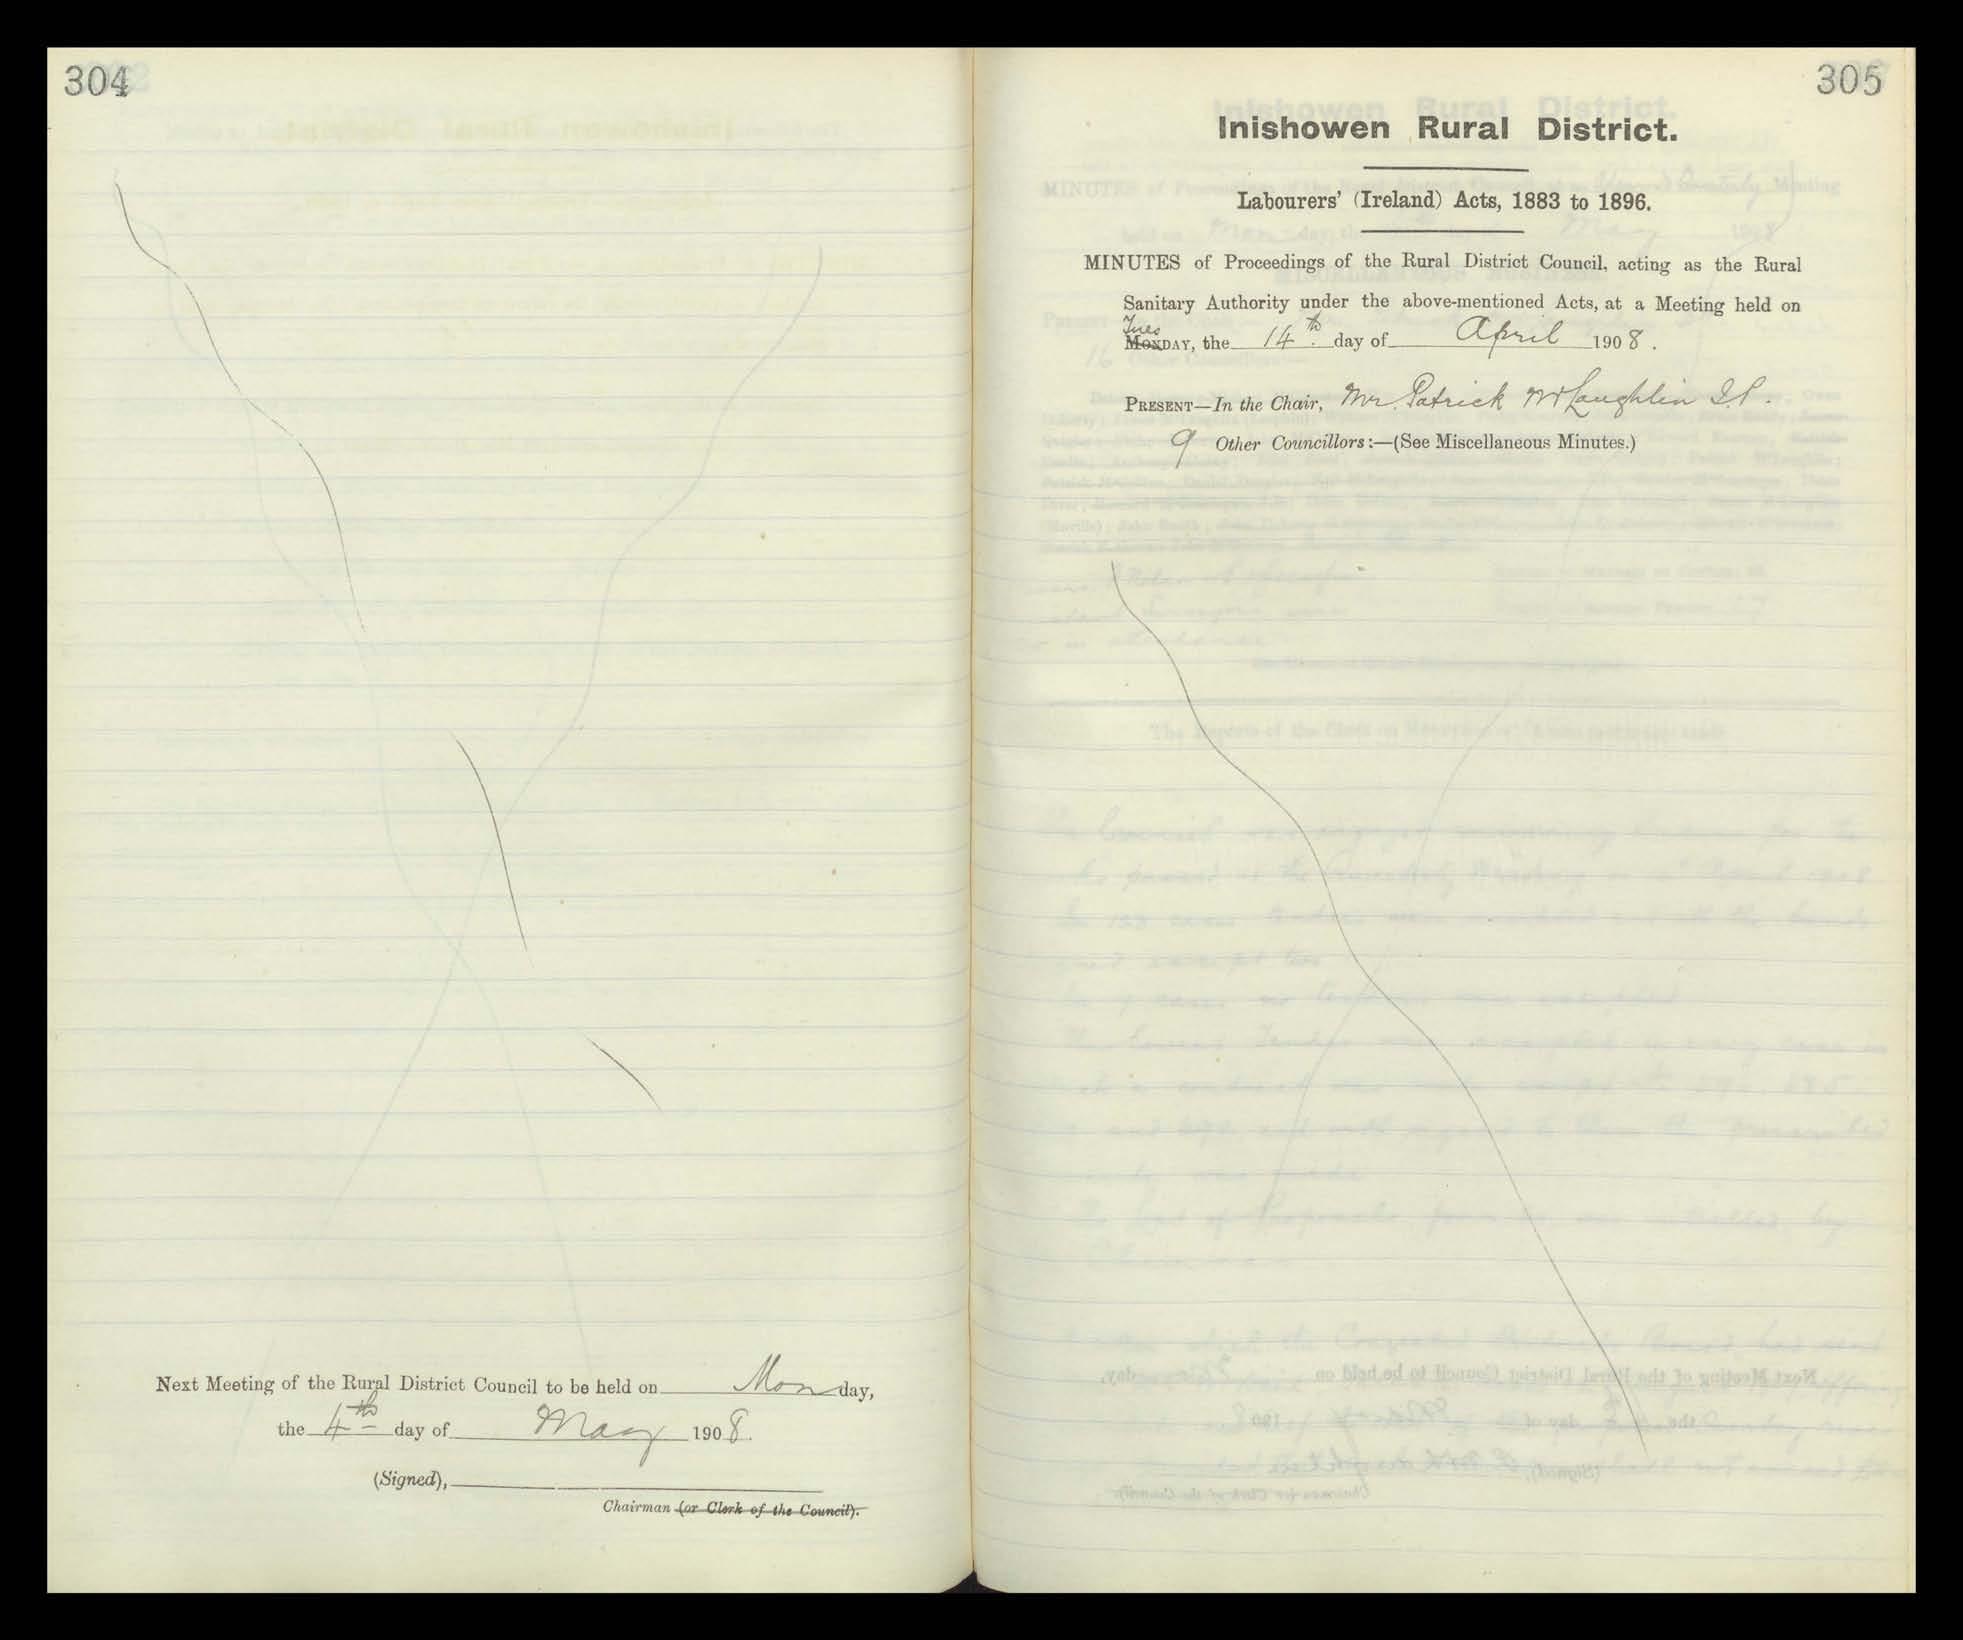 304
Next Meeting of the Rural District Council to be held on Monday,
the 4th day of May 1908.
(Signed),
Chairman (or Clerk of the Council).
305
Inishowen Rural District.
Labourers' (Ireland) Acts, 1883 to 1896.
MINUTES of Proceedings of the Rural District Council, acting as the Rural
Sanitary Authority under the above-mentioned Acts, at a Meeting held on
Tues
MONDAY, the 14th day of April 1908.
PRESENT—In the Chair, Mr. Patrick McLaughlin J.P.
9 Other Councillors:—(See Miscellaneous Minutes.)